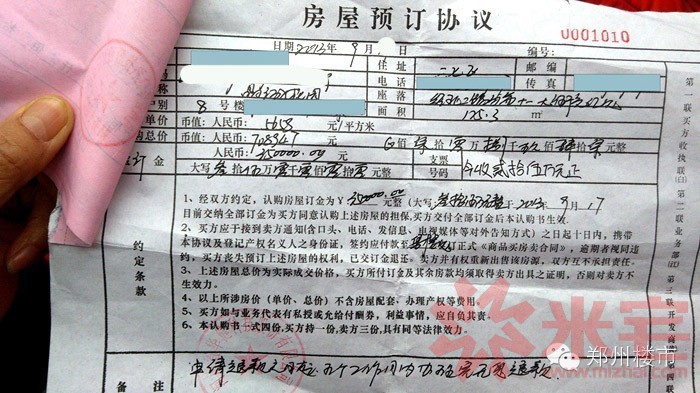 房屋预订协议
0001010
日期2013年9月 日
编号:
住址
邮编
电话
传真
称
座落
户别
8号楼
面积
125.3 m²
单价
币值:人民币: 元/平方米
内总价
币值:人民币: 708347 元
佰 拾 万 仟 佰 拾 元整
订金
人民币: 350000.00 元
大写 叁拾伍万零千零佰零拾零元整
支票号码
今收贰拾伍万元正
约定条款
1、经双方约定,认购房屋订金为¥350000.00元整(大写 叁拾伍万元整于2013年9月17
日前交纳全部订金为买方同意认购上述房屋的担保,买方交付全部订金后本认购书生效。
2、买方应于接到卖方通知(含口头、电话、发信息、电视媒体等对外告知方式)之日起十日内,携带
本协议及登记产权名义人之身份证,签约应付款至 签订正式《商品买房卖合同》,逾期者视同违
约,买方丧失预订上述房屋的权利,已交订金退还。卖方并有权重新出售该房源,双方互不承担责任。
3、上述房屋总价为实际成交价格,买方所付订金及其余房款均须取得卖方出具之证明,否则对卖方不
生效力。
4、以上所涉房价(单价、总价)不含房屋配套、办理产权等费用。
5、买方如与业务代表有私授或允给付酬券,利益事情,应自负其责。
6、本认购书一式四份,买方持一份,卖方三份,具有同等法律效力。
备注
申请退款之日起五个工作日内办理完无息退款
第一联买方收执联(白)
第二联业务部(红)
第三联开发商
米宅
www.mizhai.com
郑州楼市